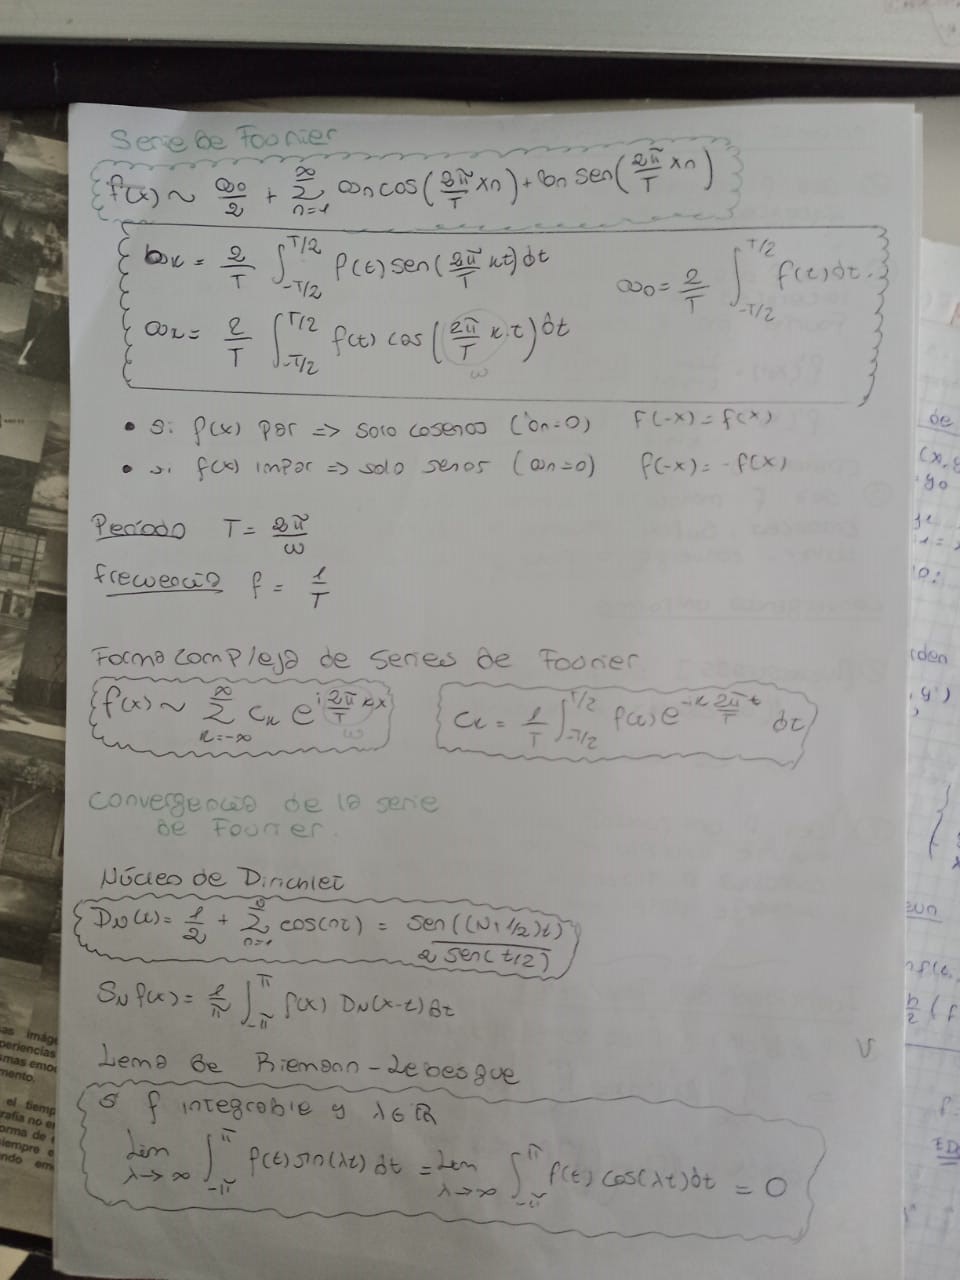 Serie de Fourier
f(x) ~ a₀/2 + ∞∑n=1 an cos(2π/T xn) + bn sen(2π/T xn)
bk = 2/T ∫-T/2^T/2 f(t) sen(2π/T kt) dt
a₀ = 2/T ∫-T/2^T/2 f(t) dt.
ak = 2/T ∫-T/2^T/2 f(t) cos(2π/T k t) dt
ω
• Si f(x) par => solo cosenos (bn=0) f(-x) = f(x)
• si f(x) impar => solo senos (an=0) f(-x) = -f(x)
Período T = 2π/ω
frecuencia f = 1/T
Forma compleja de series de Fourier
f(x) ~ ∞∑k=-∞ ck e^(i 2π/T kx)
ω
ck = 1/T ∫-T/2^T/2 f(x) e^(-ik 2π/T t) dt
Convergencia de la serie
de Fourier.
Núcleo de Dirichlet
DN(t) = 1/2 + ∑n=1 cos(nt) = sen((N+1/2)t)/2 sen(t/2)
SN f(x) = 1/π ∫-π^π f(x) DN(x-t) dt
Lema de Riemann-Lebesgue
Si f integrable y λ∈ℝ
Lim λ→∞ ∫-π^π f(t) sin(λt) dt = Lim λ→∞ ∫-π^π f(t) cos(λt) dt = 0